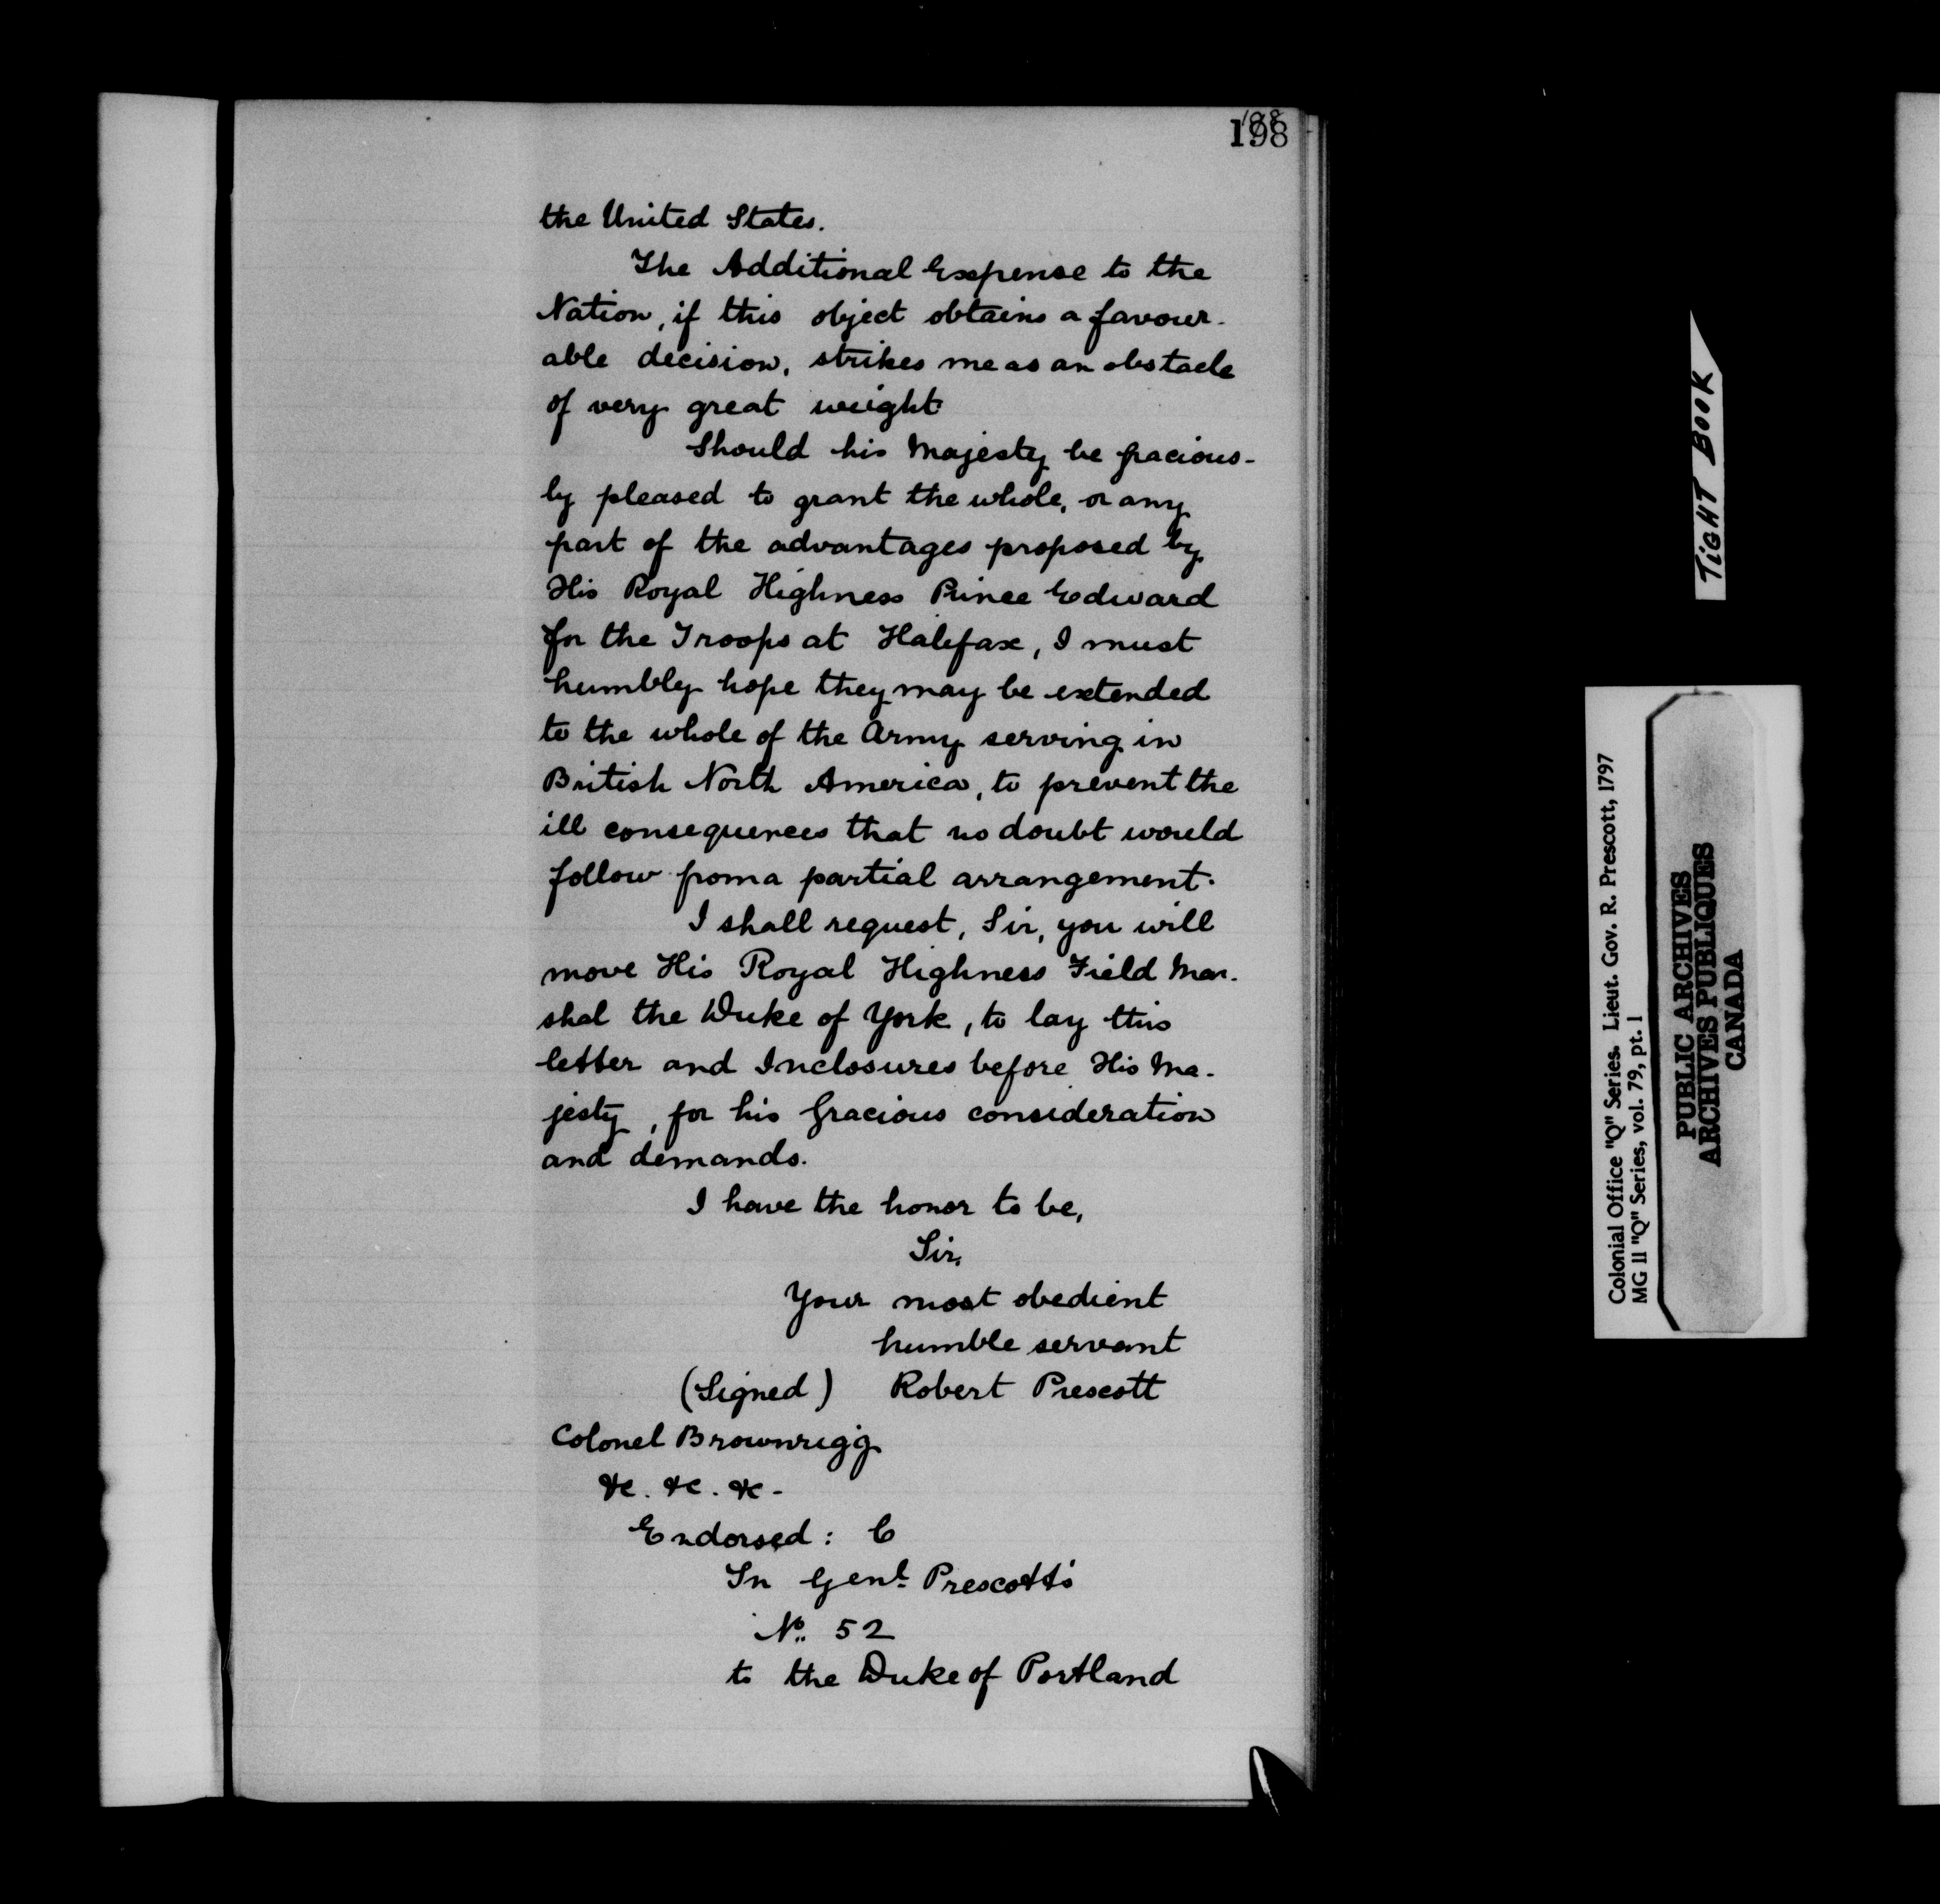 198
the United States.
The Additional Expense to the
Nation, if this object obtains a favour-
able decision, strikes me as an obstacle
of very great weight
Should his Majesty be gracious-
ly pleased to grant the whole, or any
part of the advantages proposed by
His Royal Highness Prince Edward
for the Troops at Halifax, I must
humbly hope they may be extended
to the whole of the Army serving in
British North America, to prevent the
ill consequences that no doubt would
follow from a partial arrangement.
I shall request, Sir, you will
move His Royal Highness Field Mar-
shal the Duke of York, to lay this
letter and Inclosures before His Ma-
jesty, for his Gracious consideration
and demands.
I have the honor to be,
Sir,
Your most obedient
humble servant
(Signed) Robert Prescott
Colonel Brownrigg
&c. &c. &c-
Endorsed: C
In Genl. Prescott's
No. 52
to the Duke of Portland
TIGHT BOOK
Colonial Office "Q" Series. Lieut. Gov. R. Prescott, 1797
MG 11 "Q" Series, vol. 79, pt. 1
PUBLIC ARCHIVES
ARCHIVES PUBLIQUES
CANADA